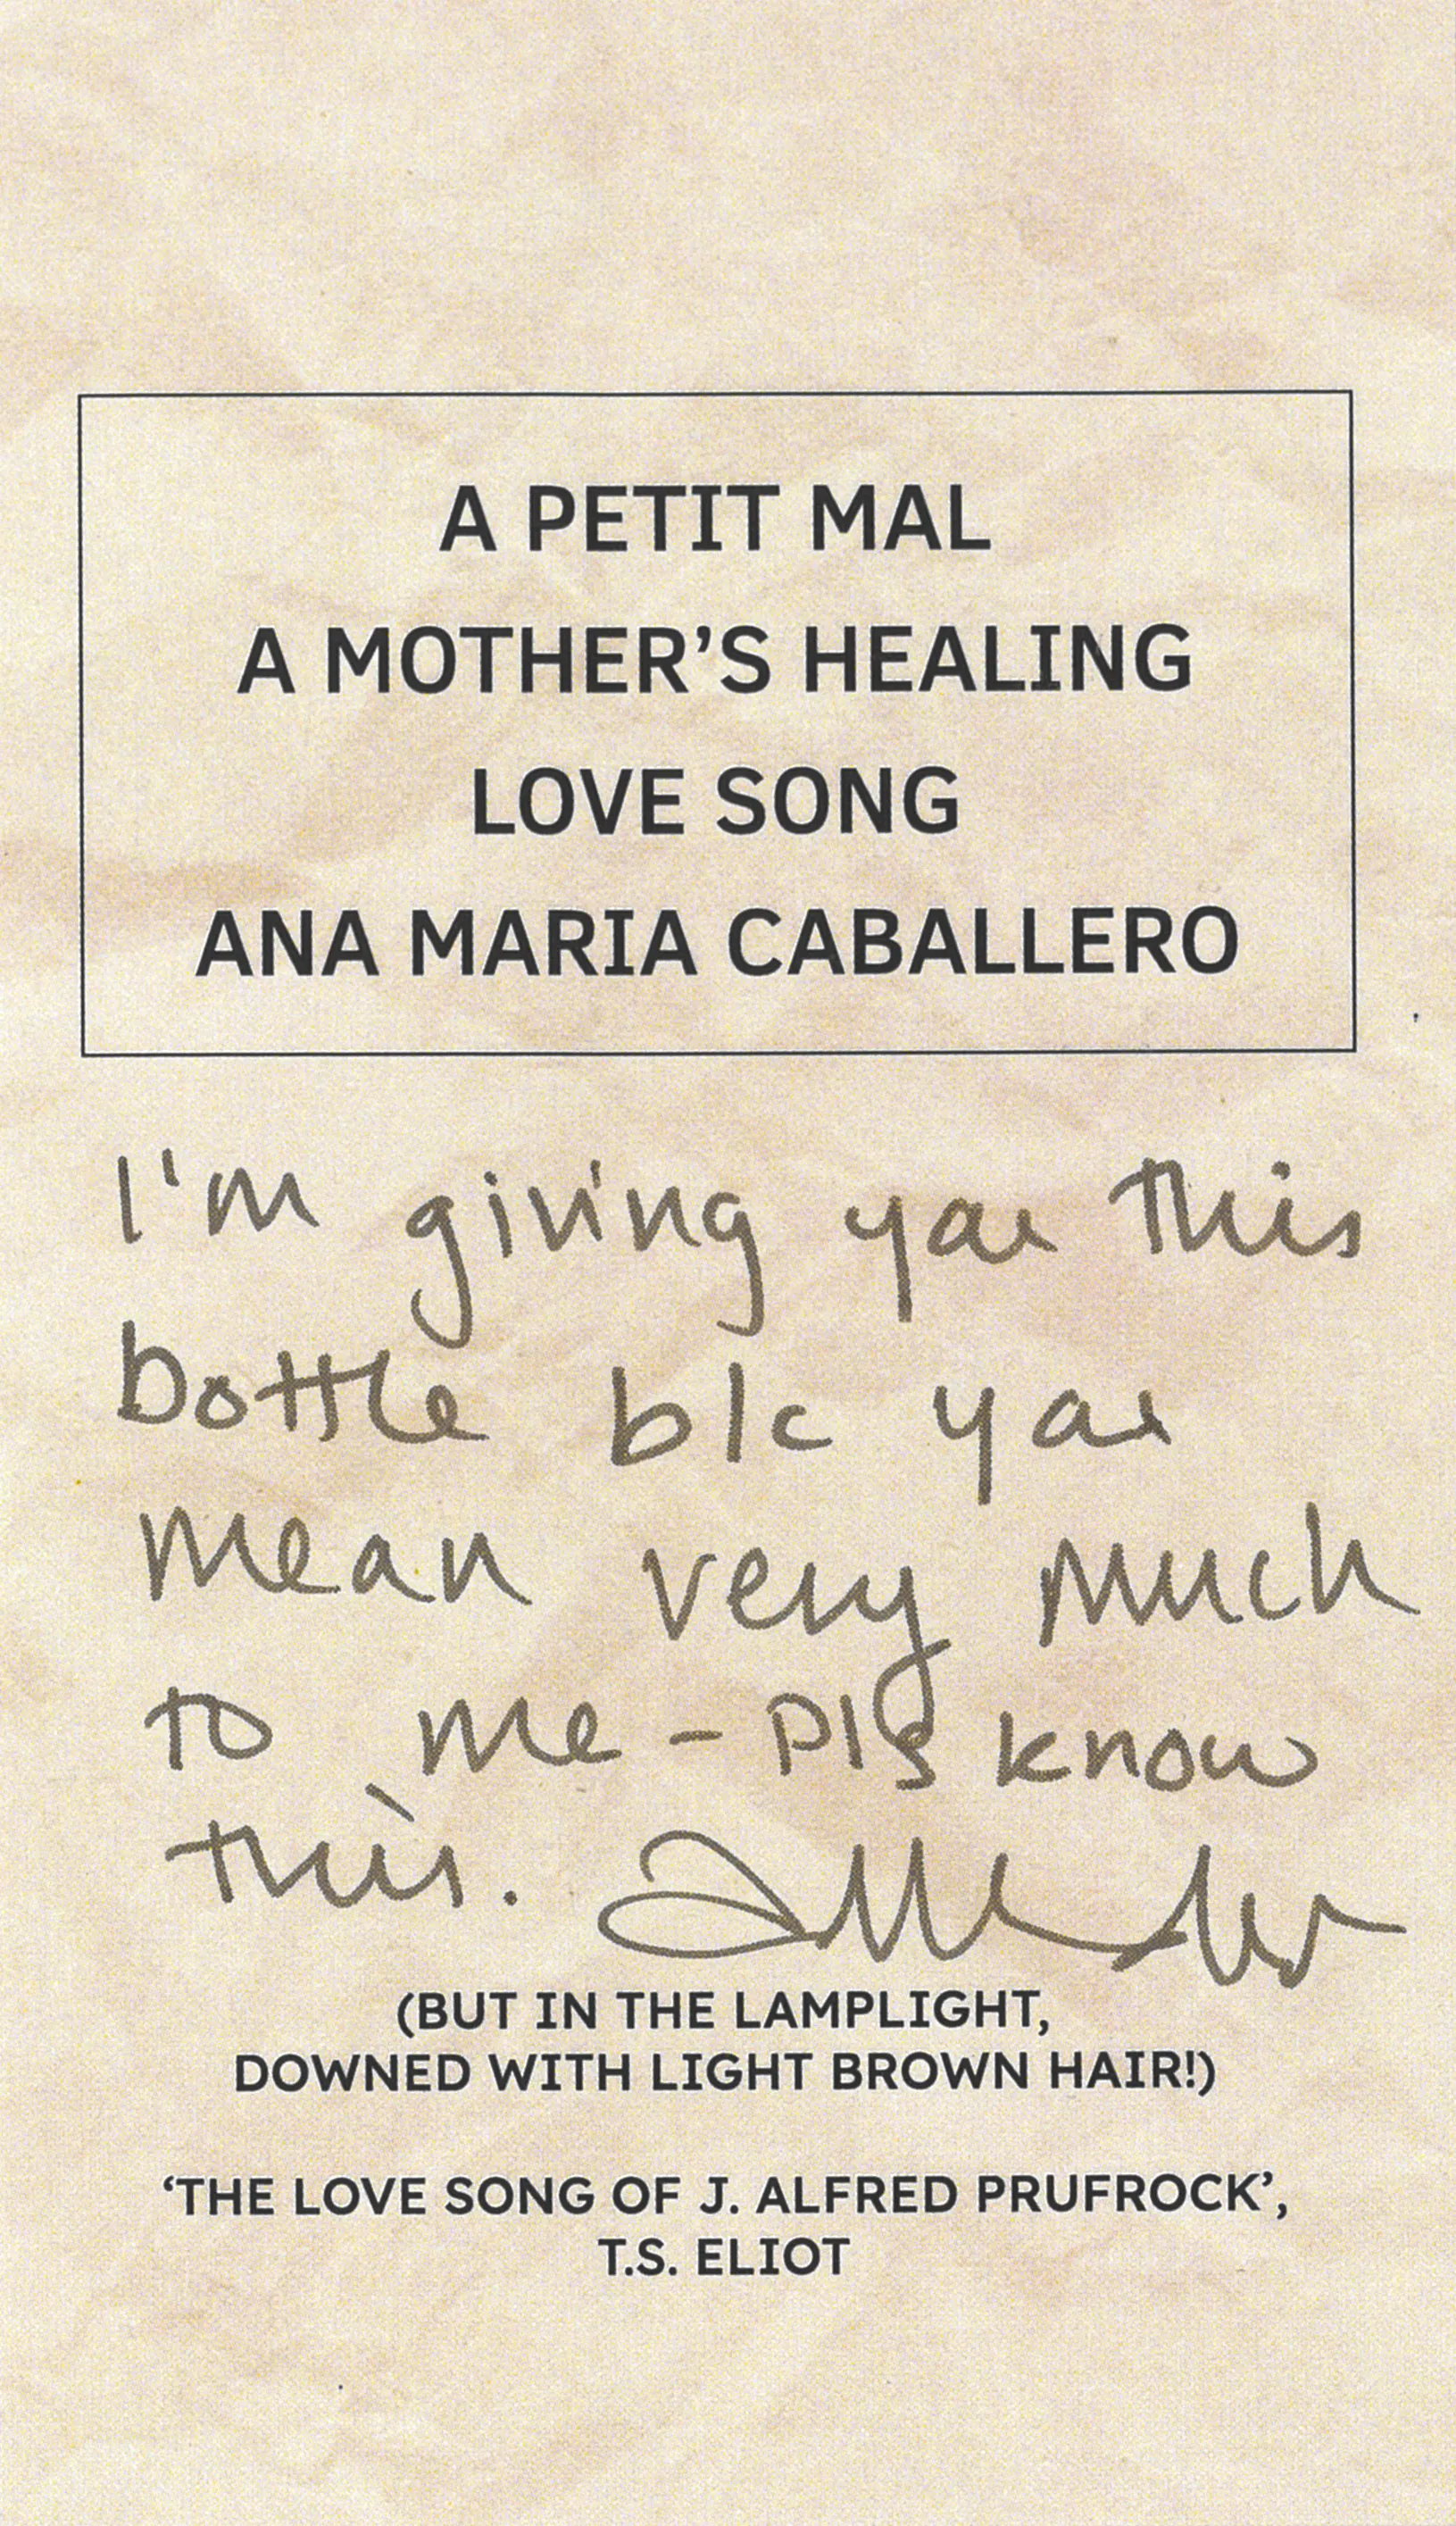 A PETIT MAL
A MOTHER’S HEALING
LOVE SONG
ANA MARIA CABALLERO
I'm giving you this
bottle b/c you
mean very much
to me - pls know
this.
(BUT IN THE LAMPLIGHT,
DOWNED WITH LIGHT BROWN HAIR!)
‘THE LOVE SONG OF J. ALFRED PRUFROCK’,
T.S. ELIOT